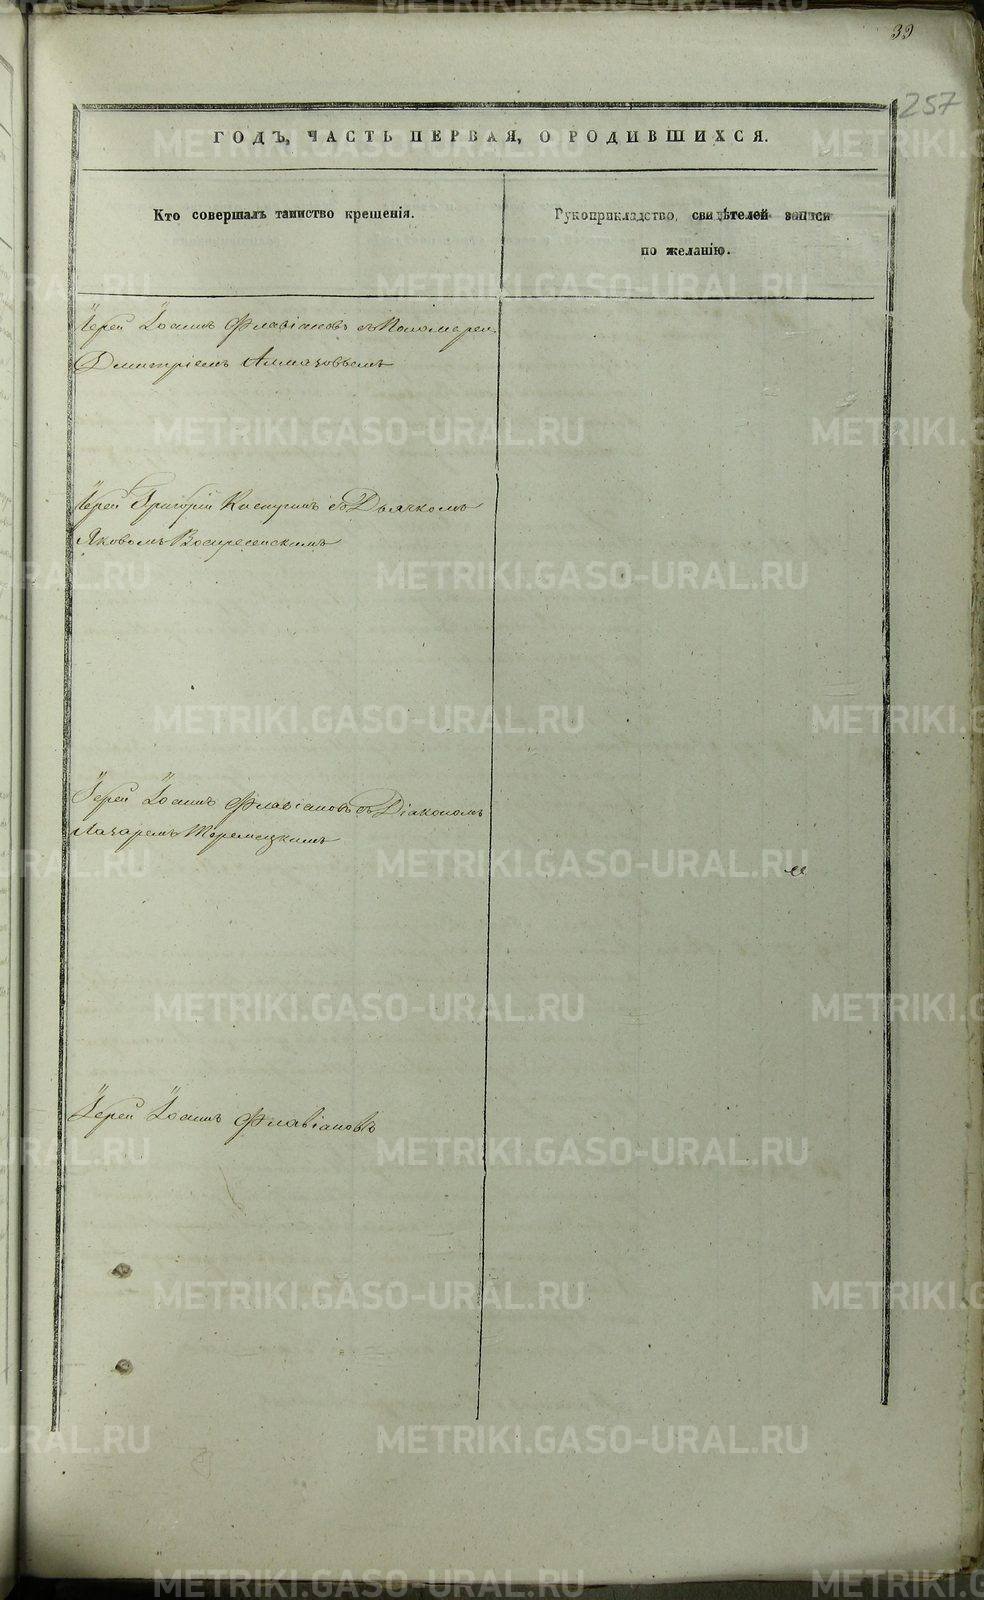 39
257
ГОДЪ, ЧАСТЬ ПЕРВАЯ, О РОДИВШИХСЯ.
Кто совершалъ таинство крещенія.
Рукоприкладство свидѣтелей записи
по желанію.
Іерей Іоаннъ Флавіановъ съ Пономарем
Димитріемъ Алмазовымъ
Іерей Григорій съ Дьячкомъ
Яковомъ Воскресенскимъ
Іерей Іоаннъ Флавіановъ съ Діакономъ
Лазаремъ
Іерей Іоаннъ Флавіановъ
METRIKI.GASO-URAL.RU